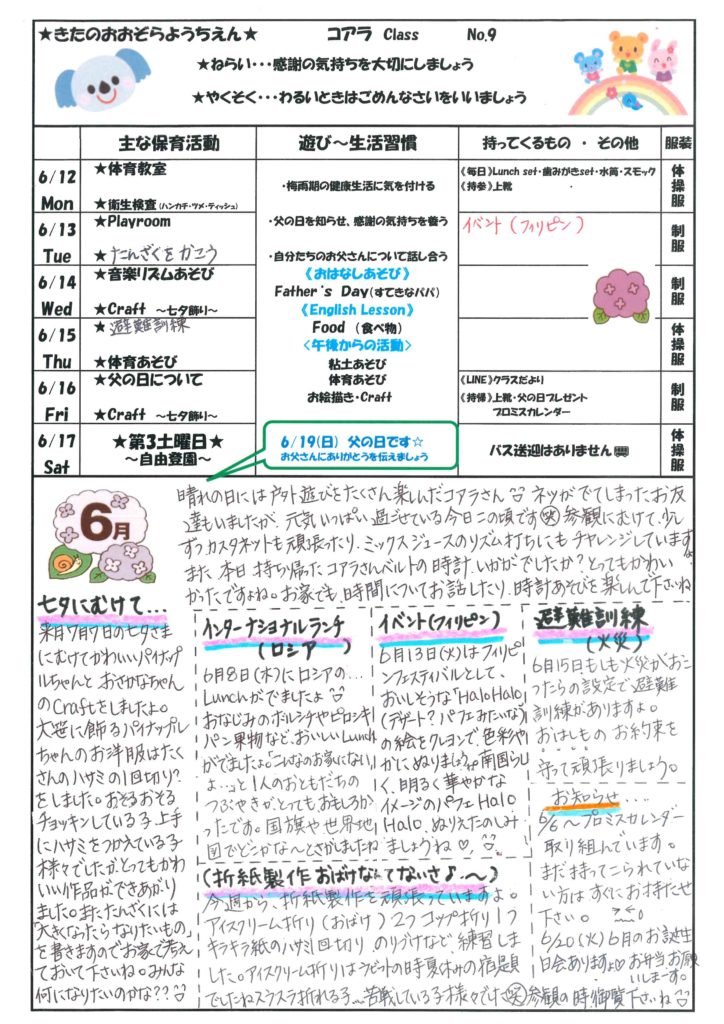 ★きたのおおぞらようちえん★ コアラ Class No.9
★ねらい・・・感謝の気持ちを大切にしましょう
★やくそく・・・わるいときはごめんなさいをいいましょう
主な保育活動 遊び～生活習慣 持ってくるもの ・ その他 服装
6/12 Mon
★体育教室
★衛生検査(ハンカチ・ツメ・ティッシュ)
《毎日》Lunch set・歯みがきset・水筒・スモック
《持参》上靴
体操服
6/13 Tue
★Playroom
★たんざくをかこう
イベント(フィリピン)
制服
6/14 Wed
★音楽リズムあそび
★Craft ～七夕飾り～
制服
6/15 Thu
★避難訓練
★体育あそび
体操服
6/16 Fri
★父の日について
★Craft ～七夕飾り～
《LINE》クラスだより
《持帰》上靴・父の日プレゼント
プロミスカレンダー
制服
6/17 Sat
★第3土曜日★
～自由登園～
バス送迎はありません
体操服
・梅雨期の健康生活に気を付ける
・父の日を知らせ、感謝の気持ちを養う
・自分たちのお父さんについて話し合う
《おはなしあそび》
Father's Day(すてきなパパ)
《English Lesson》
Food (食べ物)
<午後からの活動>
粘土あそび
体育あそび
お絵描き・Craft
6/19(日) 父の日です☆
お父さんにありがとうを伝えましょう
6月
晴れの日には戸外遊びをたくさん楽しんだコアラさん ネツがでてしまったお友
達もいましたが、元気いっぱい過ごせている今日この頃です(笑)参観にむけて、少し
ずつカスタネットも頑張ったり、ミックスジュースのリズム打ちにもチャレンジしていますよ
また、本日持ち帰ったコアラさんベルトの時計、いかがでしたか?とってもかわい
かったですよね。お家でも、時間についてお話したり、時計あそびを楽しんで下さいね
七夕にむけて...
来月7月7日の七夕さま
にむけてかわいいパイナップ
ルちゃんとおさかなちゃん
のCraftをしましたよ。
大笹に飾るパイナップル
ちゃんのお洋服はたく
さんのハサミの1回切り?
をしました。おそるおそる
チョッキンしている子、上手
にハサミをつかえている子
様々でしたが、とってもかわ
いい作品ができあがり
ました。またたんざくには
「大きくなったらなりたいもの」
を書きますのでお家で考え
ておいて下さいね。みんな
何になりたいのかな??
インターナショナルランチ
(ロシア)
6月8日(木)にロシアの...
Lunchがでましたよ
おなじみのボルシチやピロシキ
パン果物など、おいしいLunch
がでましたよ「こんなのお家にない
よ...」と1人のおともだちの
つぶやきが、とってもおもしろか
ったです。国旗や世界地
図でどこかな〜とさがしましたね
イベント(フィリピン)
6月13日(火)はフィリピ
ンフェスティバルとして、
おいしそうな「HaloHalo」
(デザート?パフェみたいな)
の絵をクレヨンで、色彩や
かにぬりましょう。南国らし
く、明るく華やかな
イメージのパフェHalo
Halo、ぬりえたのしみ
ましょうね♡
避難訓練
(火災)
6月15日、もしも火災がおこ
ったらの設定で避難
訓練がありますよ。
おはしものお約束を
守って頑張りましょう。
お知らせ....
6/6〜プロミスカレンダー
取り組んでいます。
まだ持ってこられていな
い方はすぐにお持たせ
下さい。
6/20(火)6月のお誕生
日会ありますよ♡お弁当お願
いしまーす。
(折紙製作おばけなんてないさ♪〜)
今週から、折紙製作を頑張っていますよ。
アイスクリーム折り(おばけ)2つコップ折り1つ
キラキラ紙のハサミ1回切り、のりづけなど、練習しま
した。アイスクリーム折りはラビットの時夏休みの宿題
でしたねスラスラ折れる子〜苦戦している子様々でした(笑)参観の時御覧下さいね